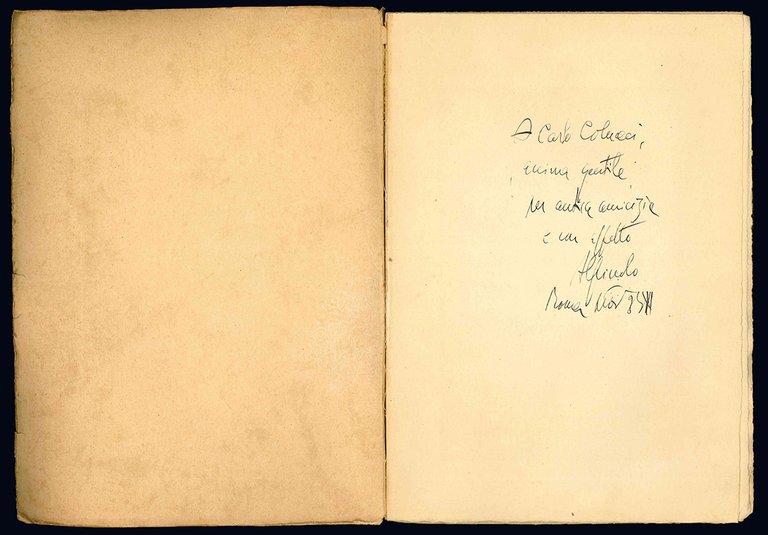 A Carlo Colucci,
anima gentile,
per antica amicizia
e con affetto
Alfredo
Roma